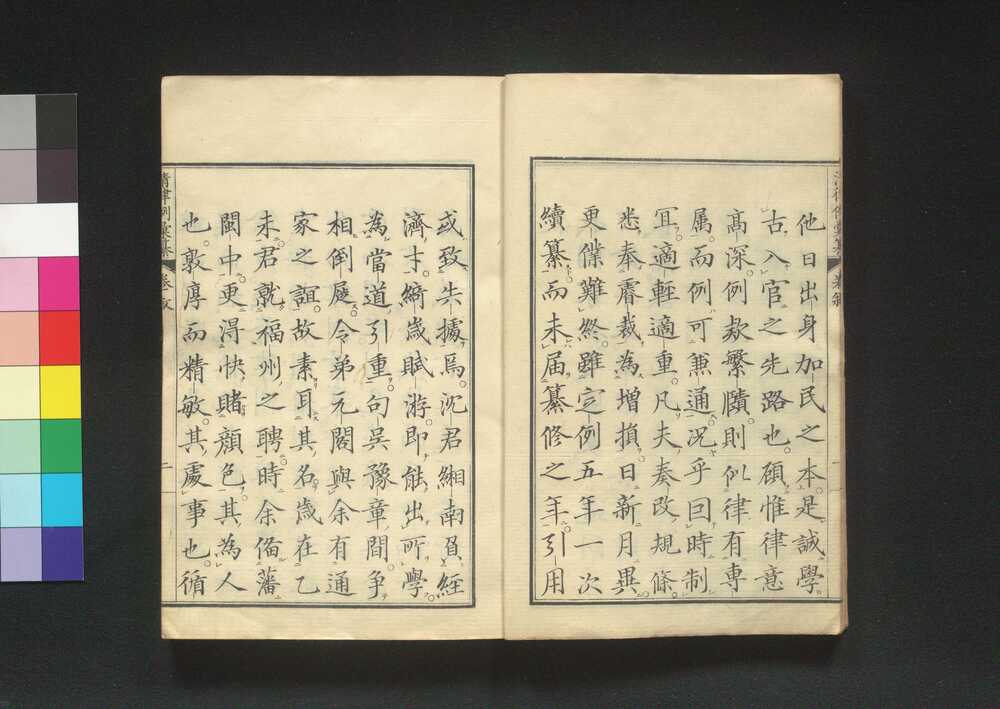 他日出身加民之本是誠學
古入官之先路也顧惟律意
高深例欵繁賾則似律有專
属而例可兼通況乎回時制
冝適輕適重凡夫奏改規條
悉奉睿裁為增損日新月異
更僕難終雖定例五年一次
續纂而未届纂修之年引用
或致失據焉沈君緗南負經
濟才綺歲賦游即能出所學
為當道引重句吳豫章間爭
相倒屣令弟元閣與余有通
家之誼故素耳其名歲在乙
未君就福州之聘時余備藩
閩中更得快睹顏色其為人
也敦厚而精敏其處事也循
清律例彙纂 卷 二